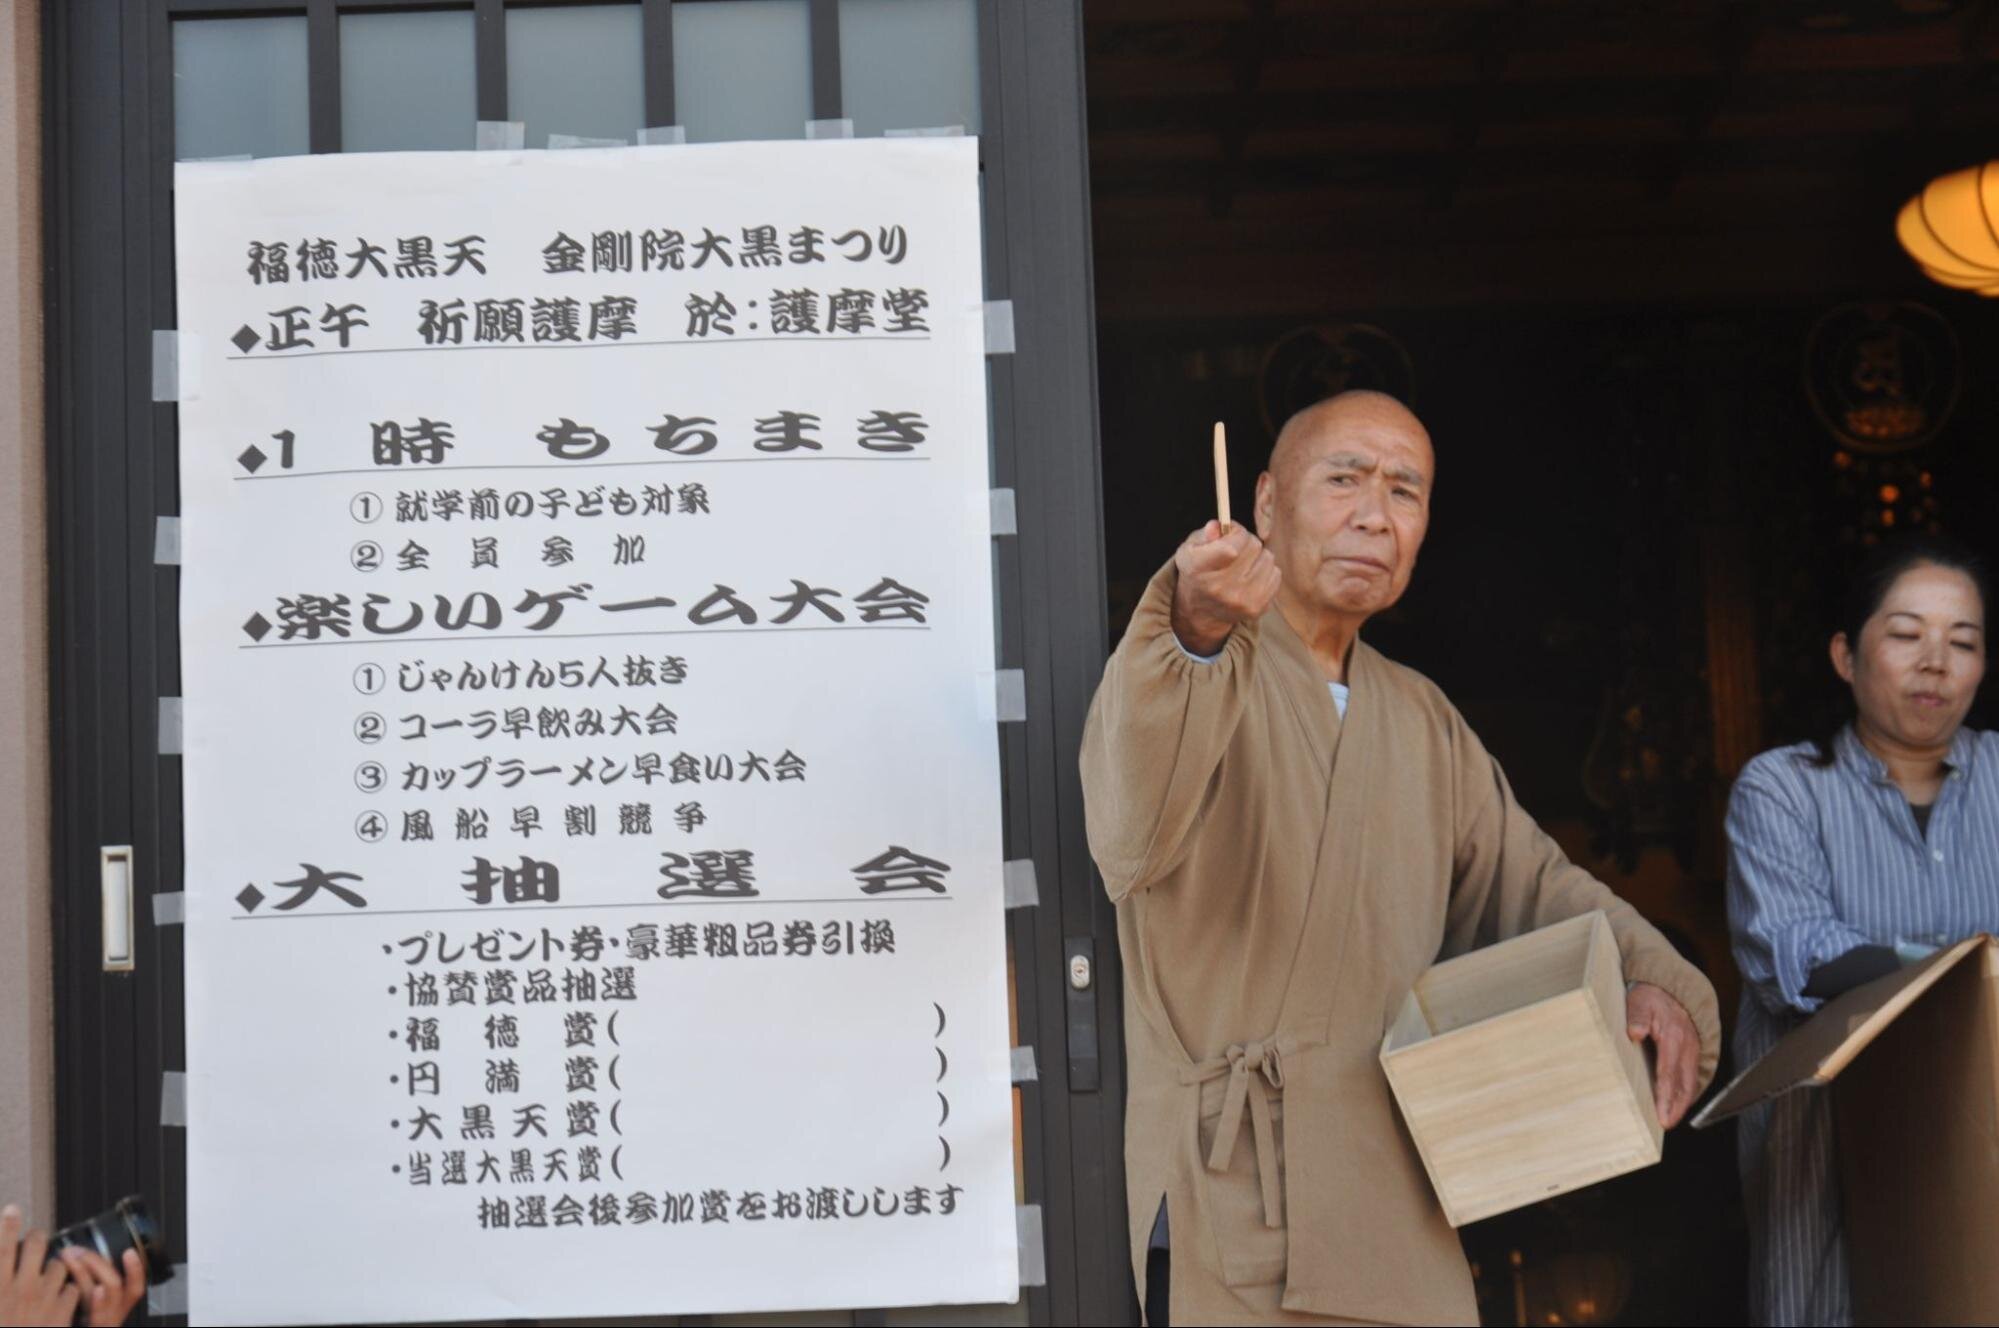 福徳大黒天　金剛院大黒まつり
◆正午　祈願護摩　於：護摩堂
◆1　時　もちまき
① 就学前の子ども対象
② 全　員　参　加
◆楽しいゲーム大会
① じゃんけん5人抜き
② コーラ早飲み大会
③ カップラーメン早食い大会
④ 風　船　早　割　競　争
◆大　抽　選　会
・プレゼント券・豪華粗品券引換
・協賛賞品抽選
・福　徳　賞（　　　　　　　）
・円　満　賞（　　　　　　　）
・大　黒　天　賞（　　　　　　　）
・当選大黒天賞（　　　　　　　）
抽選会後参加賞をお渡しします